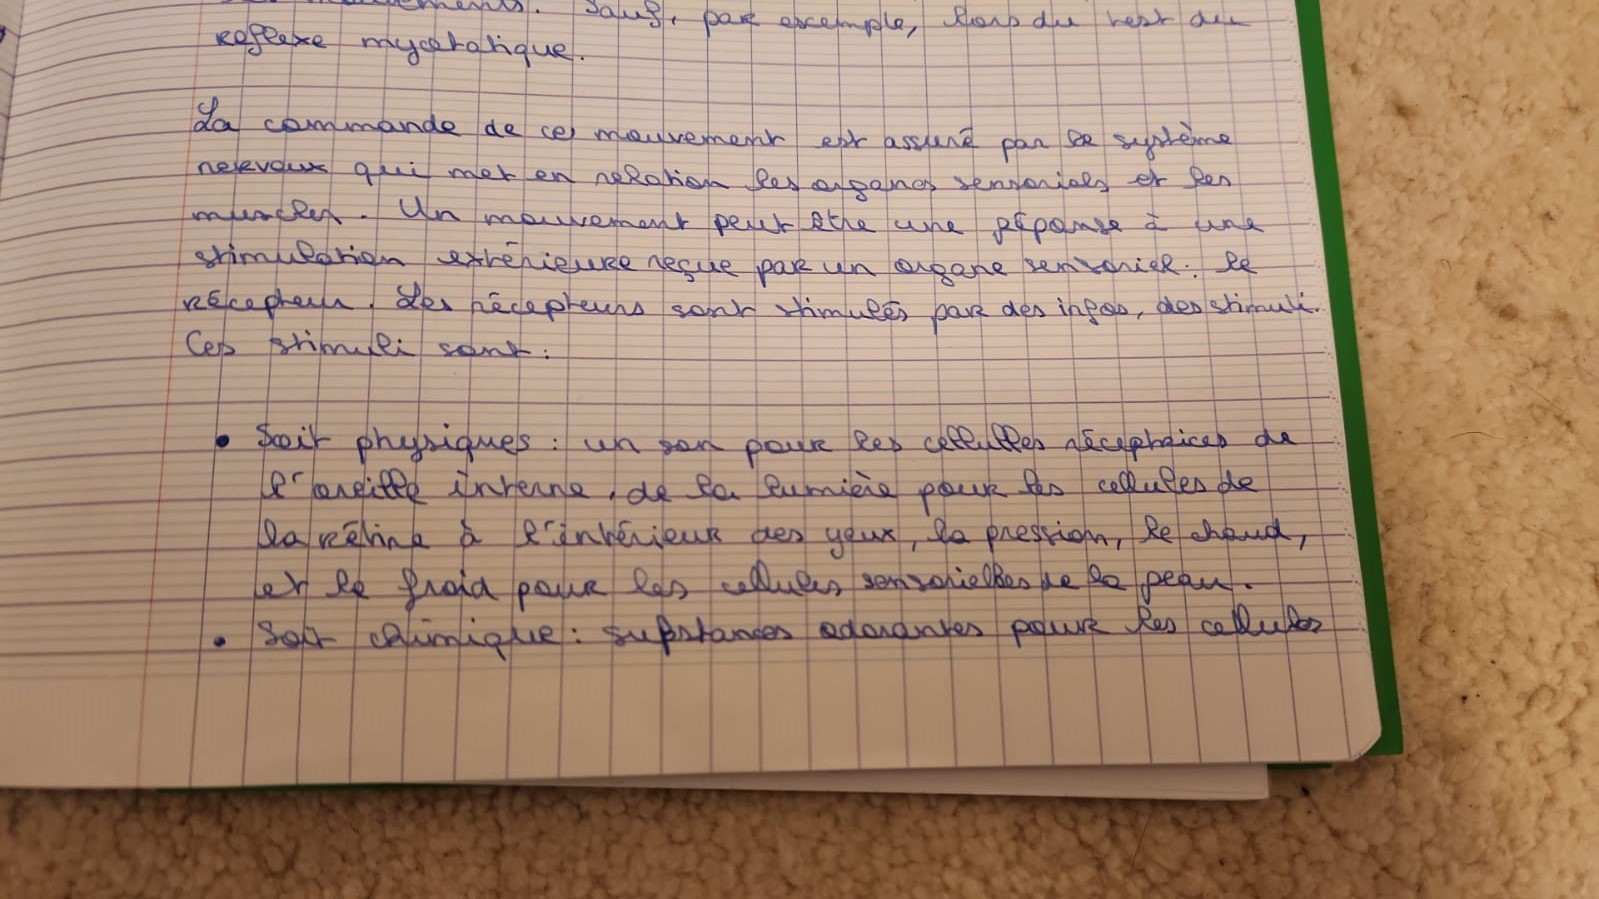 mouvements. Sauf, par excemple, lors du test du
reflexe mycotatique.
La commande de ces mouvement est assuré par le système
nerveux qui met en relation les organes sensoriels et les
muscles. Un mouvement peut être une réponse à une
stimulation extérieure reçue par un organe sensoriel : le
récepteur. Les récepteurs sont stimulés par des infos, des stimuli.
Ces stimuli sont :
• Soit physiques : un son pour les cellules réceptrices de
l'oreille interne, de la lumière pour les cellules de
la rétine à l'intérieur des yeux, la pression, le chaud,
et le froid pour les cellules sensorielles de la peau.
• Soit chimique : substances odorantes pour les cellules